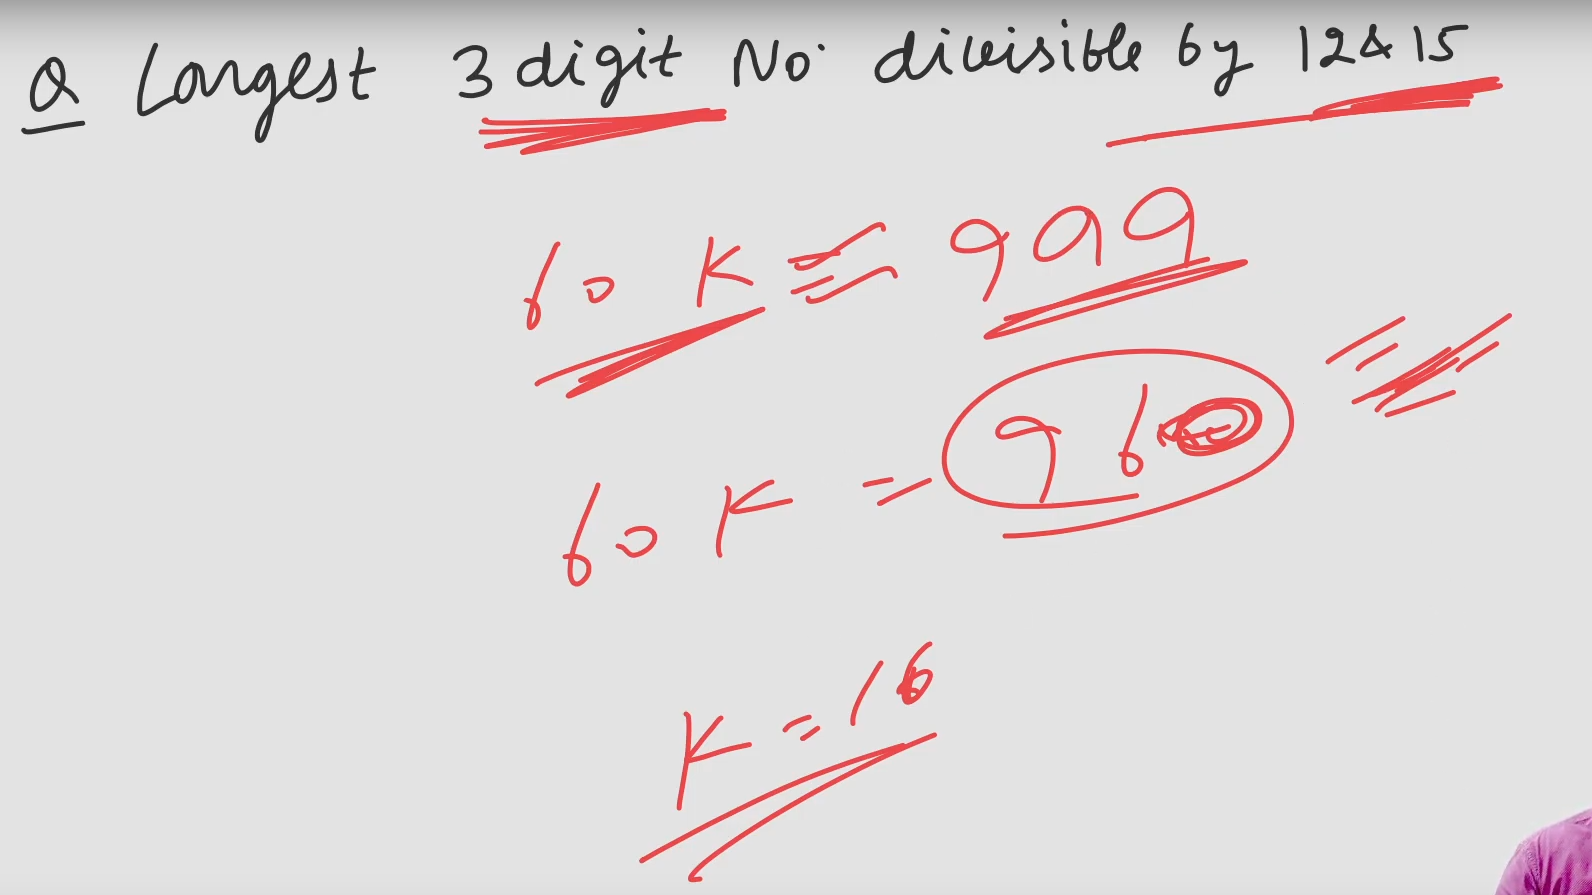 Q Largest 3 digit No. divisible by 12 & 15
60 K = 999
60 K = 960
K = 16